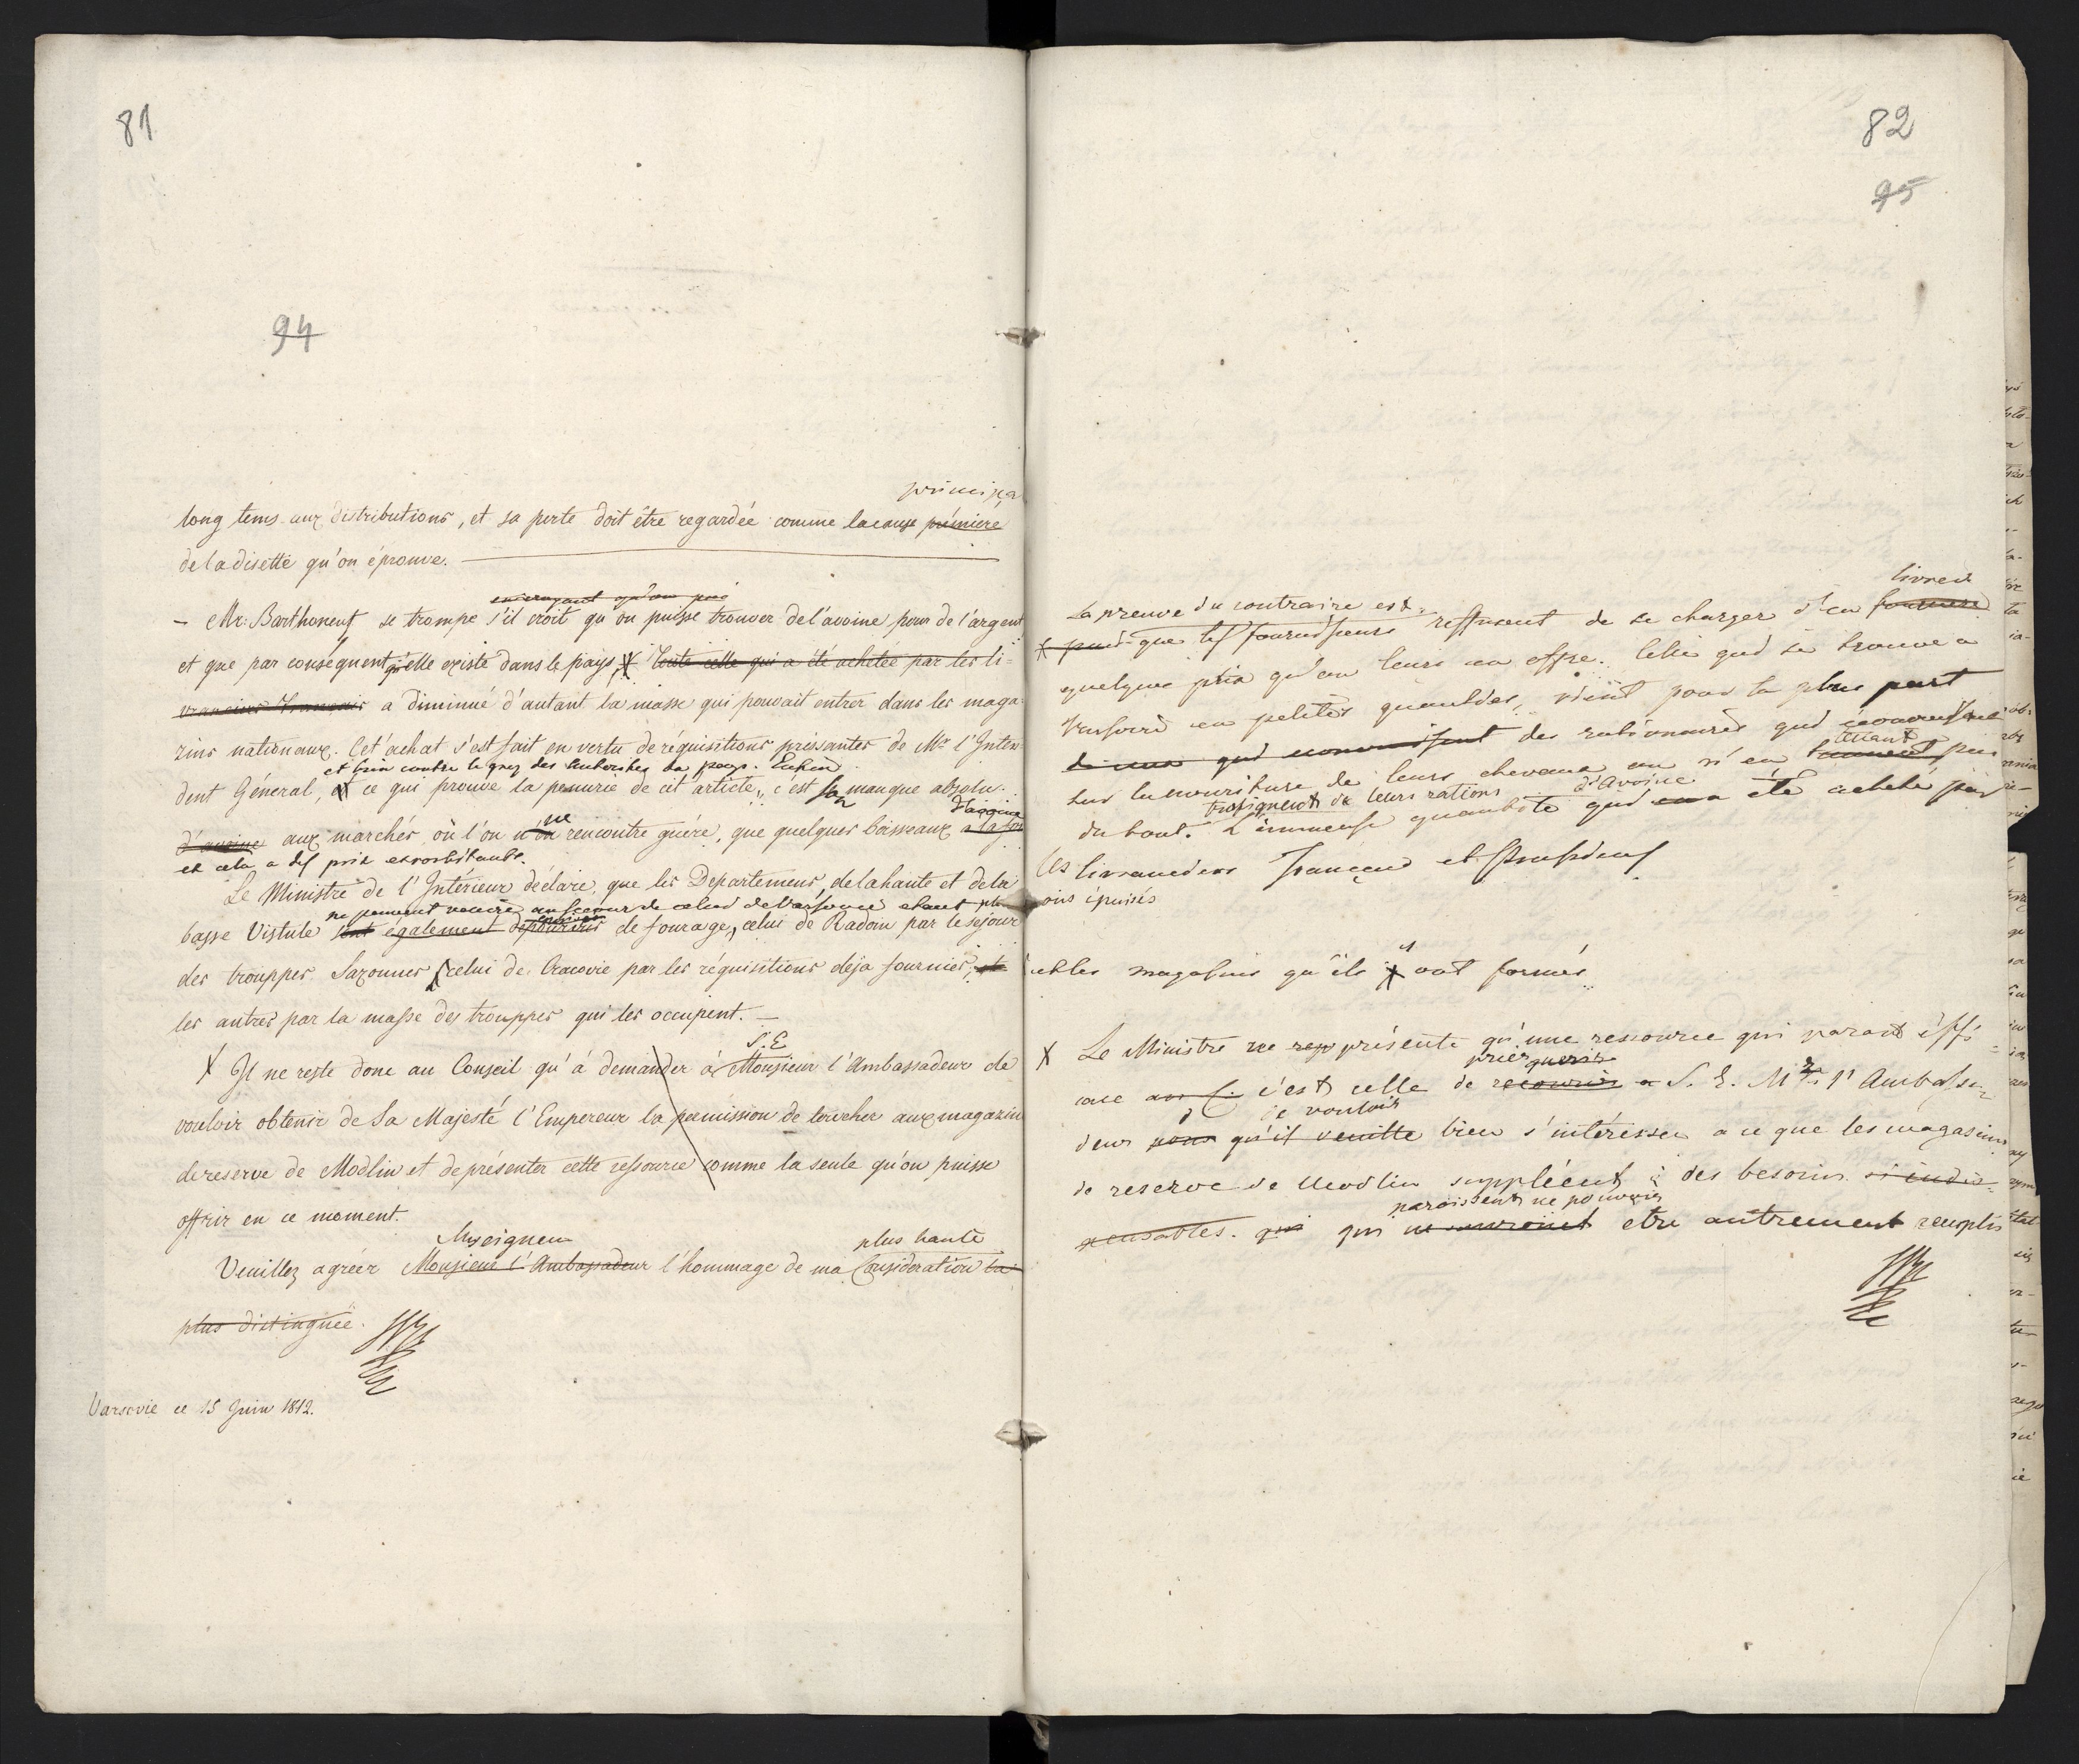 81
94
principa
long tems aux distributions, et sa perte doit être regardée comme la cause première
de la disette qu'on éprouve.
en croyant qu'on
– Mr: Barthoneuf se trompe s'il croit qu'on puisse trouver de l'avoine pour de l'argent
et que par conséquent qu'elle existe dans le pays, X Toute celle qui a été achetée par les li=
vranciers Français a diminué d'autant la masse qui pouvait entrer dans les maga
zins nationaux. Cet achat s'est fait en vertu de réquisitions pressantes de Mr l'Inten=
et bien contre le grez des Autorités du pays. Enfin
dent Général, et ce qui prouve la penurie de cet article, c'est manque absolu
d'avoine
d'avoine aux marchés où l'on n'en ne rencontre guère, que quelques boisseaux a la
et cela a des prix exorbitants.
Le Ministre de l'Intérieur déclare, que les Departemens, de la haute et de la
ne peuvent venir au secour de celui de Varsovie etant
basse Vistule sont également dépourvus de fourage, celui de Radom par le sejour
des trouppes Saxonnes celui de Cracovie par les réquisitions déja fournies, et
les autres par la masse des trouppes qui les occupent. –
S. E
X Il ne reste donc au Conseil qu'à demander à Monsieur l'Ambassadeur de
vouloir obtenir de Sa Majesté l'Empereur la permission de toucher aux magazin
de reserve de Modlin et de présenter cette ressource comme la seule qu'on puisse
offrir en ce moment.
Monseigneur plus haute
Veuillez agréer Monsieur l'Ambassadeur l'hommage de ma Considération la
plus distinguée.
Varsovie ce 15 Juin 1812.
82
95
La preuve du contraire est livrer
X que les fournisseurs reffusent de se charger d'en fournir
quelque prix qu'on leurs en offre. Celle qui se trouve a
Varsovie en petites quantités, vient pour la plus part
qui des rationnaires qui
sur la nouriture de leurs chevaux ou n'en pas
du tout. de leurs rations d'avoine
L'immense quantité qui a été acheté par
les livranciers Français et Prussiens
ois épuisés
et les magasins qu'ils y ont formés
X Le Ministre ne rep présente qu'une ressource qui parait éffi=
prier
cace c'est celle de recourir a S. E. Mr l'Ambassa=
de vouloir
deur pour qu'il veuille bien s'intéresser a ce que les magasins
de reserve de Modlin suppléent à des besoins si indis=
paroissent ne pouvoir
pensables. qui qui ne sauroient etre autrement remplis